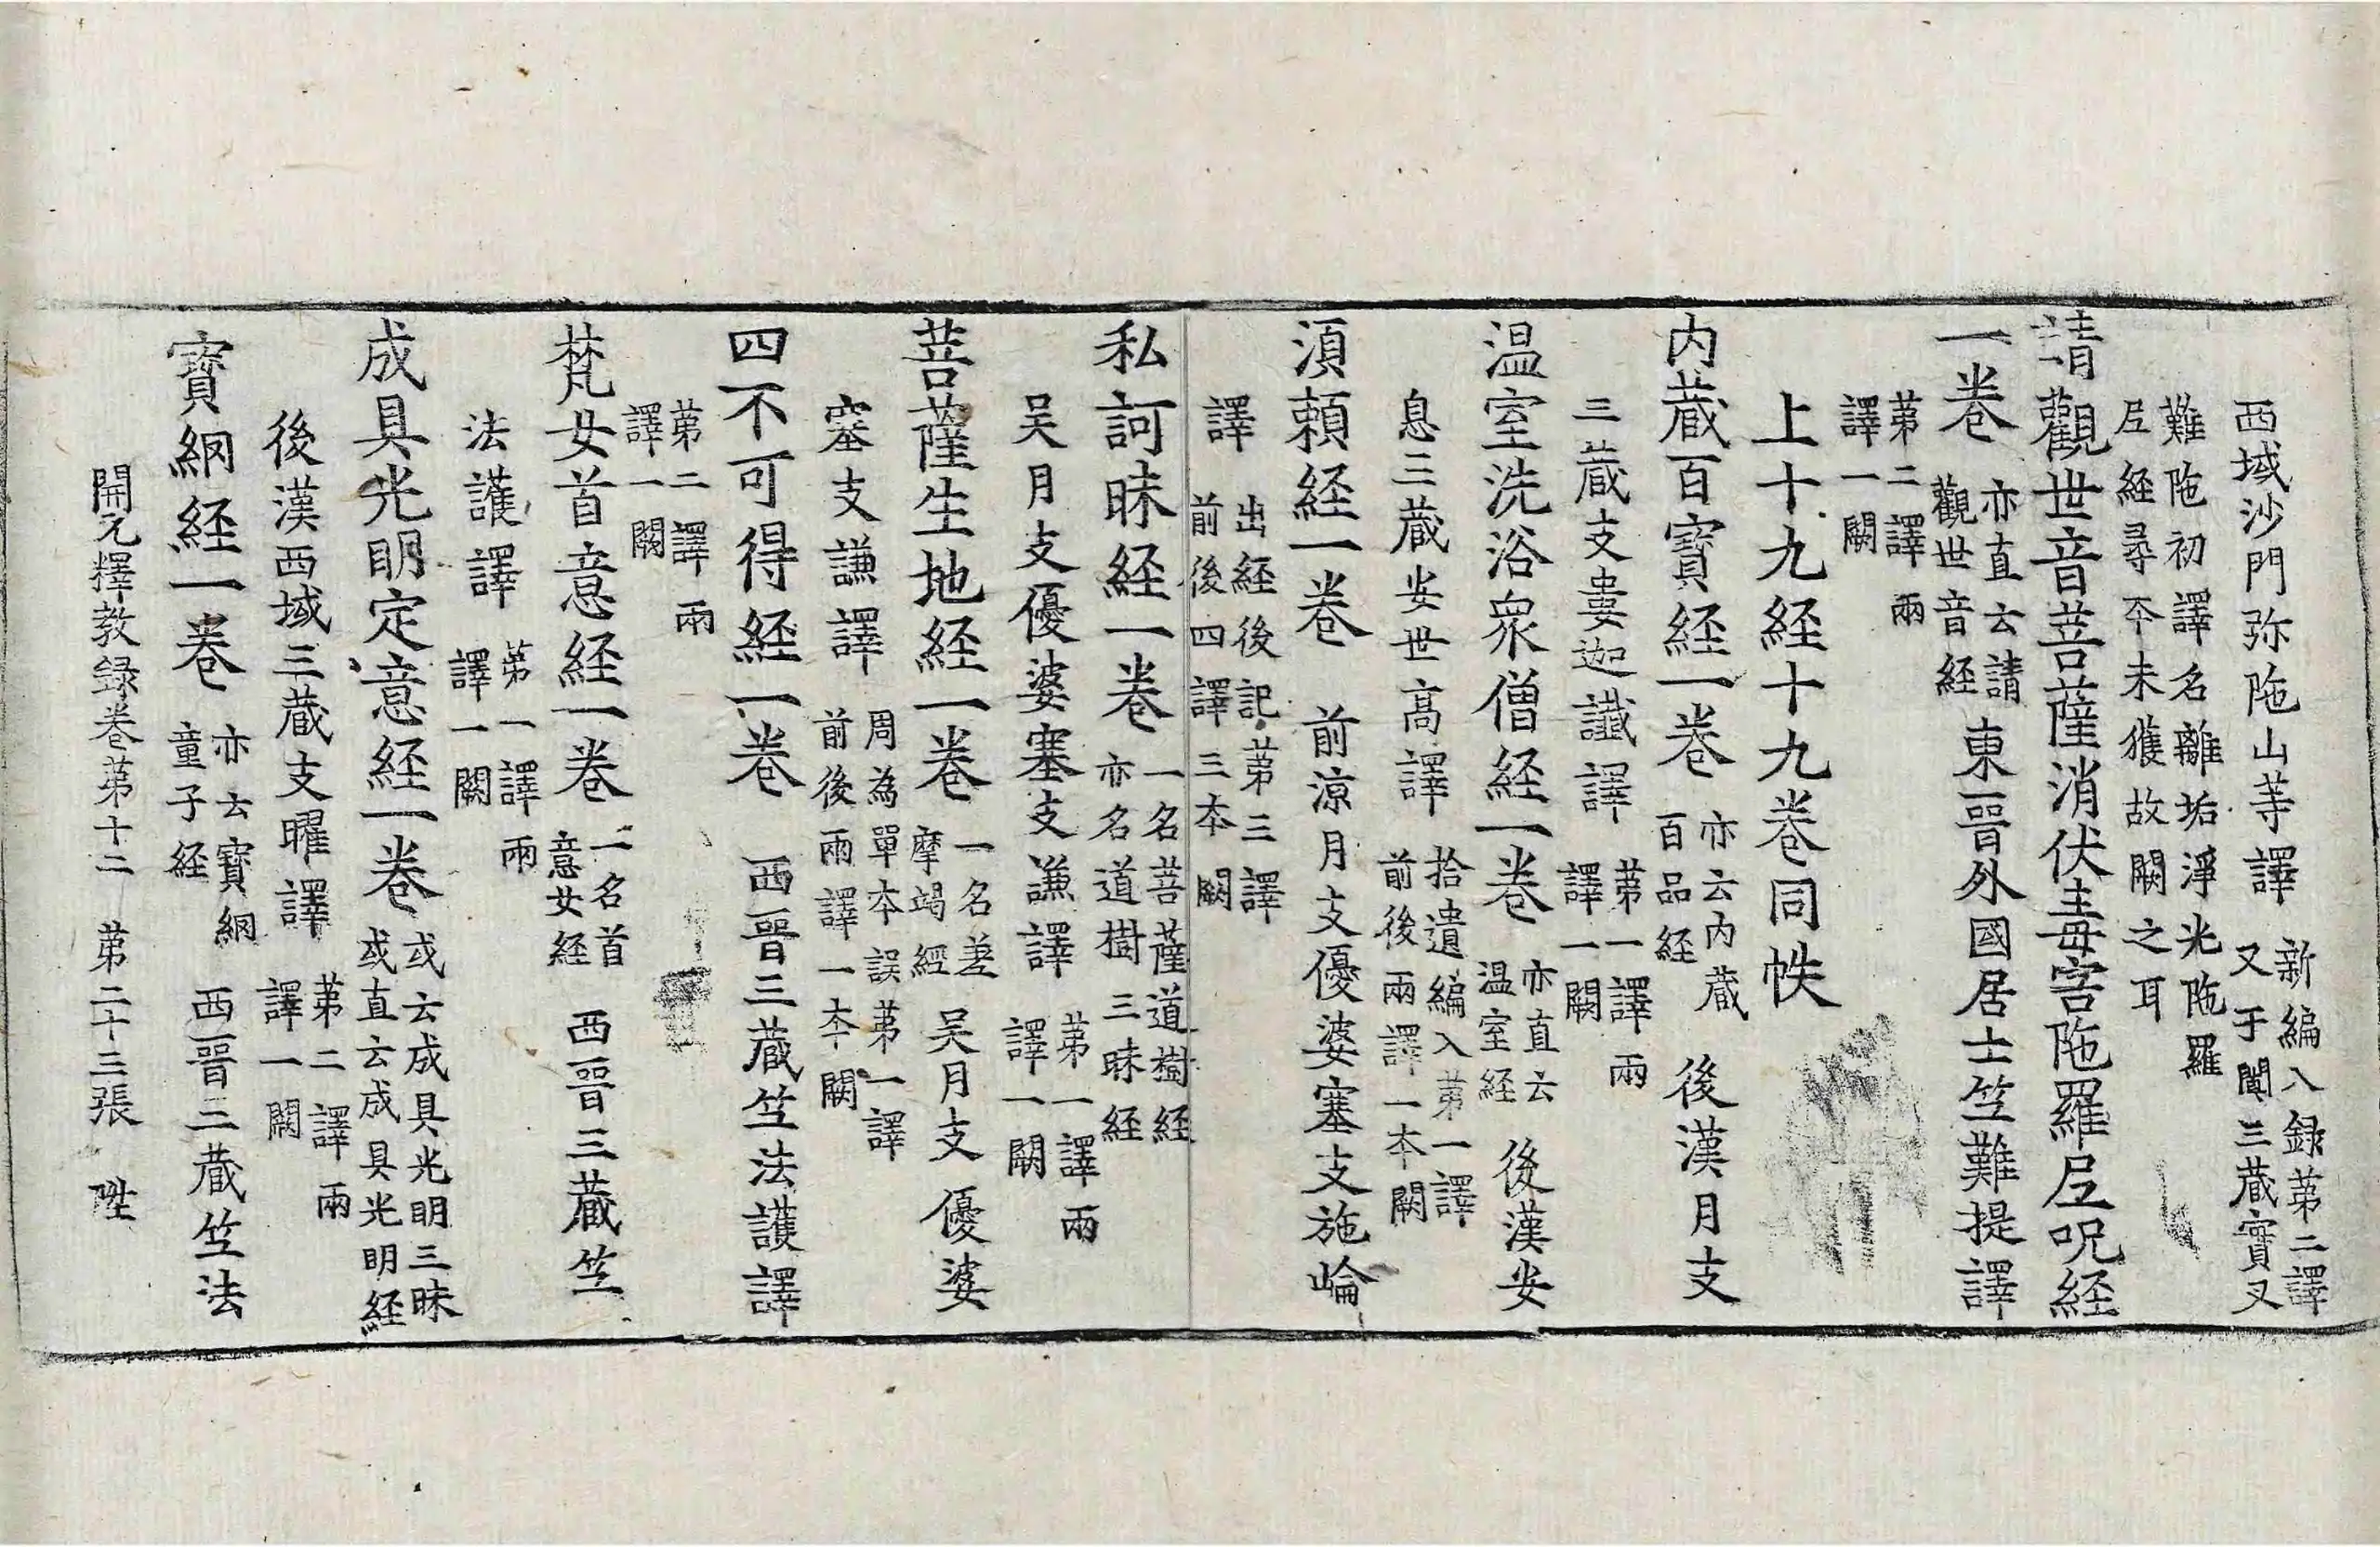 西域沙門弥陁山等譯 新編入録苐二譯
又于闐三蔵實叉
難陁初譯名離垢淨光陁羅
尼經尋夲未獲故闕之耳
請觀世音菩薩消伏毒害陁羅尼呪經
一卷 亦直云請
觀世音経 東晉外國居士竺難提譯
苐二譯兩
譯一闕
上十九経十九卷同帙
内蔵百寶経一卷 亦云内蔵
百品経 後漢月支
三蔵支婁迦讖譯 苐一譯兩
譯一闕
温室洗浴衆僧経一卷 亦直云
温室経 後漢安
息三蔵安世高譯 拾遺編入苐一譯
前後兩譯一夲闕
湏頼経一卷 前涼月支優婆塞支施崘
譯 出経後記苐三譯
前後四譯三夲闕
私訶昧経一卷 一名菩薩道樹経
亦名道樹三昧経
吴月支優婆塞支謙譯 苐一譯兩
譯一闕
菩薩生地経一卷 一名差
摩竭經 吴月支優婆
塞支謙譯 周為單夲誤苐一譯
前後兩譯一夲闕
四不可得経一卷 西晉三蔵竺法護譯
苐二譯兩
譯一闕
梵女首意経一卷 一名首
意女経 西晉三蔵竺
法護譯 苐一譯兩
譯一闕
成具光明定意経一卷 或云成具光明三昧
或直云成具光明経
後漢西域三蔵支曜譯 苐二譯兩
譯一闕
寳網経一卷 亦云寳網
童子経 西晉三蔵竺法
開元釋教録卷苐十二 苐二十三張 陞